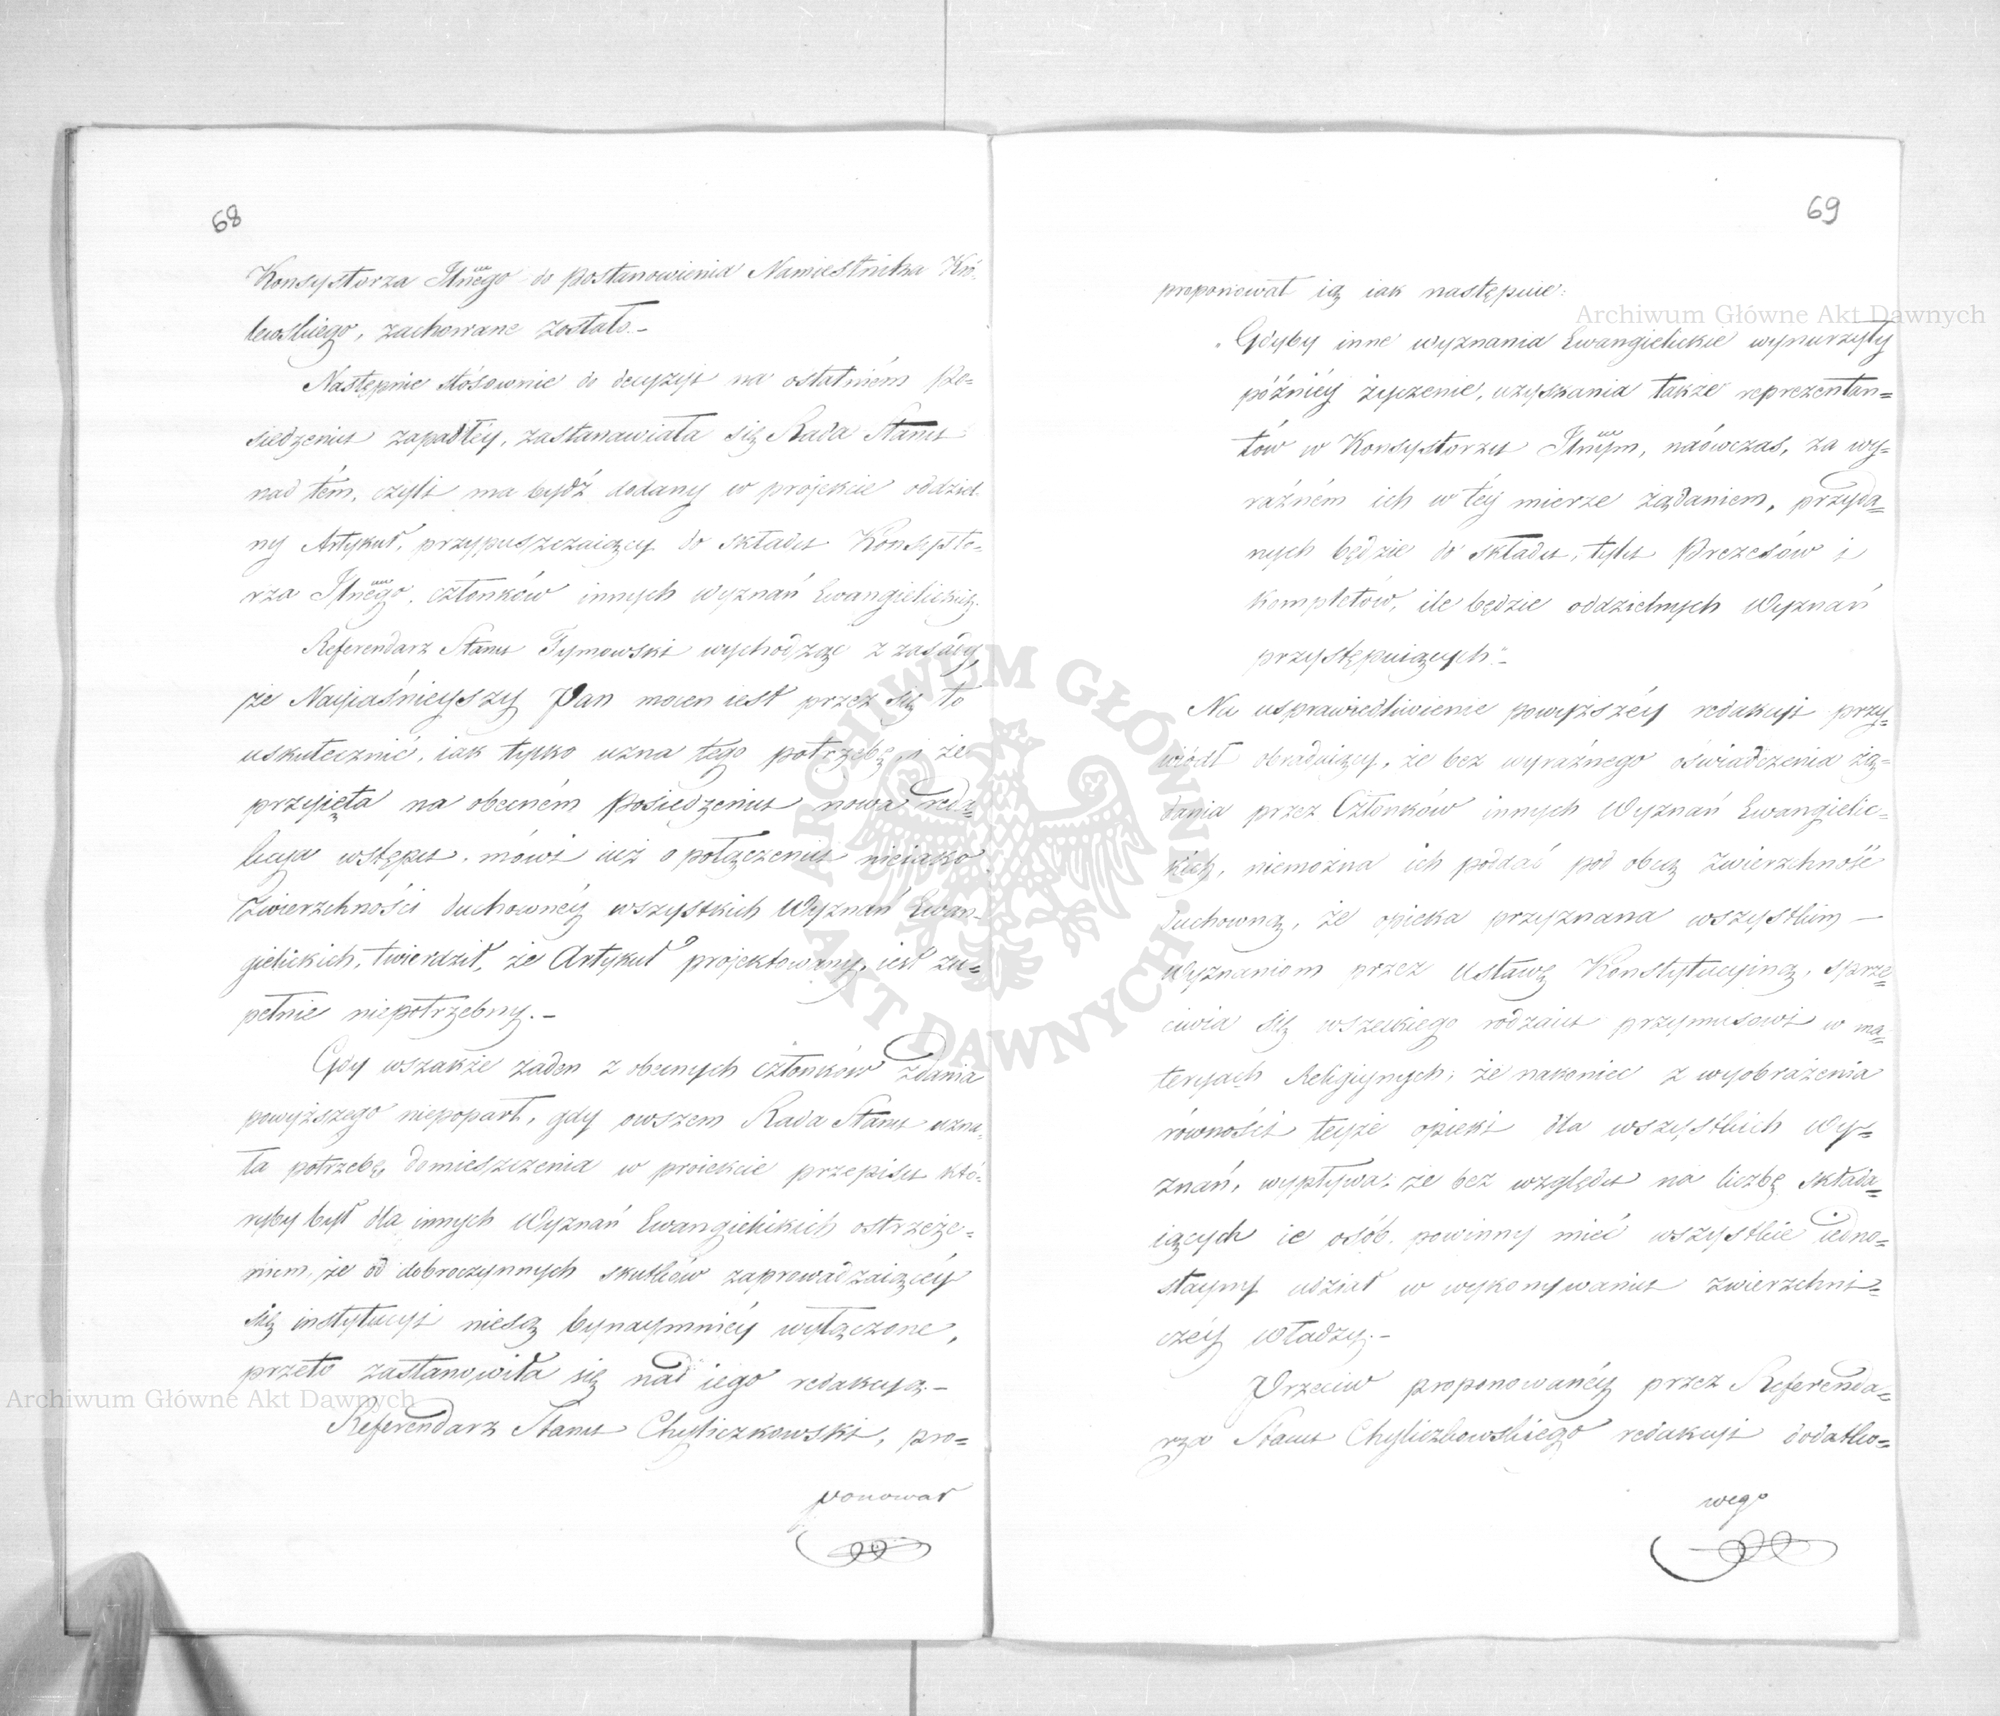 68
Konsystorza Jlnego do postanowienia Namiestnika Kró-
lewskiego, zachowane zostało.-
Następnie stósownie do decyzyi na ostatniém Po-
siedzeniu zapadłéy, zastanawiała się Rada Stanu
nad tém, czyli ma bydź dodany w projekcie oddziel-
ny Artykuł, przypuszczaiący do składu Konsysto-
rza Jlnego, członków innych Wyznań Ewangielickich.
Referendarz Stanu Tymowski wychodząc z zasady,
że Nayiaśnieyszy Pan mocen iest przez się to
uskutecznić, iak tylko uzna tego potrzebę, i że
przyięta na obecném Posiedzeniu nowa reda-
kcya wstępu, mówi iuż o połączeniu nieiako
Zwierzchności duchownéy wszystkich Wyznań Ewan-
gielickich, twierdził, że Artykuł projektowany, iest zu=
pełnie niepotrzebny.-
Gdy wszakże żaden z obecnych członków zdania
powyższego niepoparł, gdy owszem Rada Stanu uzna-
ła potrzebę domieszczenia w proiekcie przepisu któ-
ryby był dla innych Wyznań Ewangielickich ostrzeże-
niem, że od dobroczynnych skutków zaprowadzaiącéy
się instytucyi niesą bynaymniéy wyłączone,
przeto zastanowiła się nad iego redakcyą.-
Referendarz Stanu Chyliczkowski, pro=
ponował
69
proponował ią iak następuie:
"Gdyby inne wyznania Ewangielickie wynurzyły
późniéy życzenie, uzyskania także reprezentan=
tów w Konsystorzu Jlnym, naówczas, za wy-
raźném ich w téy mierze żądaniem, przyda=
nych będzie do składu, tylu Prezesów i
kompletów, ile będzie oddzielnych Wyznań
przystępuiących"-
Na usprawiedliwienie powyższéy redakcyi przy-
wiódł obraduiący, że bez wyraźnego oświadczenia żą=
dania przez Członków innych Wyznań Ewangielic-
kich, niemożna ich poddać pod obcą zwierzchność
duchowną, że opieka przyznana wszystkim —
Wyznaniom przez Ustawę Konstytucyiną, sprze-
ciwia się wszelkiego rodzaiu przymusowi w ma-
teryach Religiynych; że nakoniec z wyobrażenia
równości teyże opieki dla wszystkich Wy=
znań, wypływa, że bez względu na liczbę składa=
iących ie osób, powinny mieć wszystkie iedno-
stayny udział w wykonywaniu zwierzchni=
czéy władzy.-
Przeciw proponowanéy przez Referenda=
rza Stanu Chyliczkowskiego redakcyi dodatko=
wego
Archiwum Główne Akt Dawnych
Archiwum Główne Akt Dawnych
ARCHIWUM GŁÓWNE AKT DAWNYCH